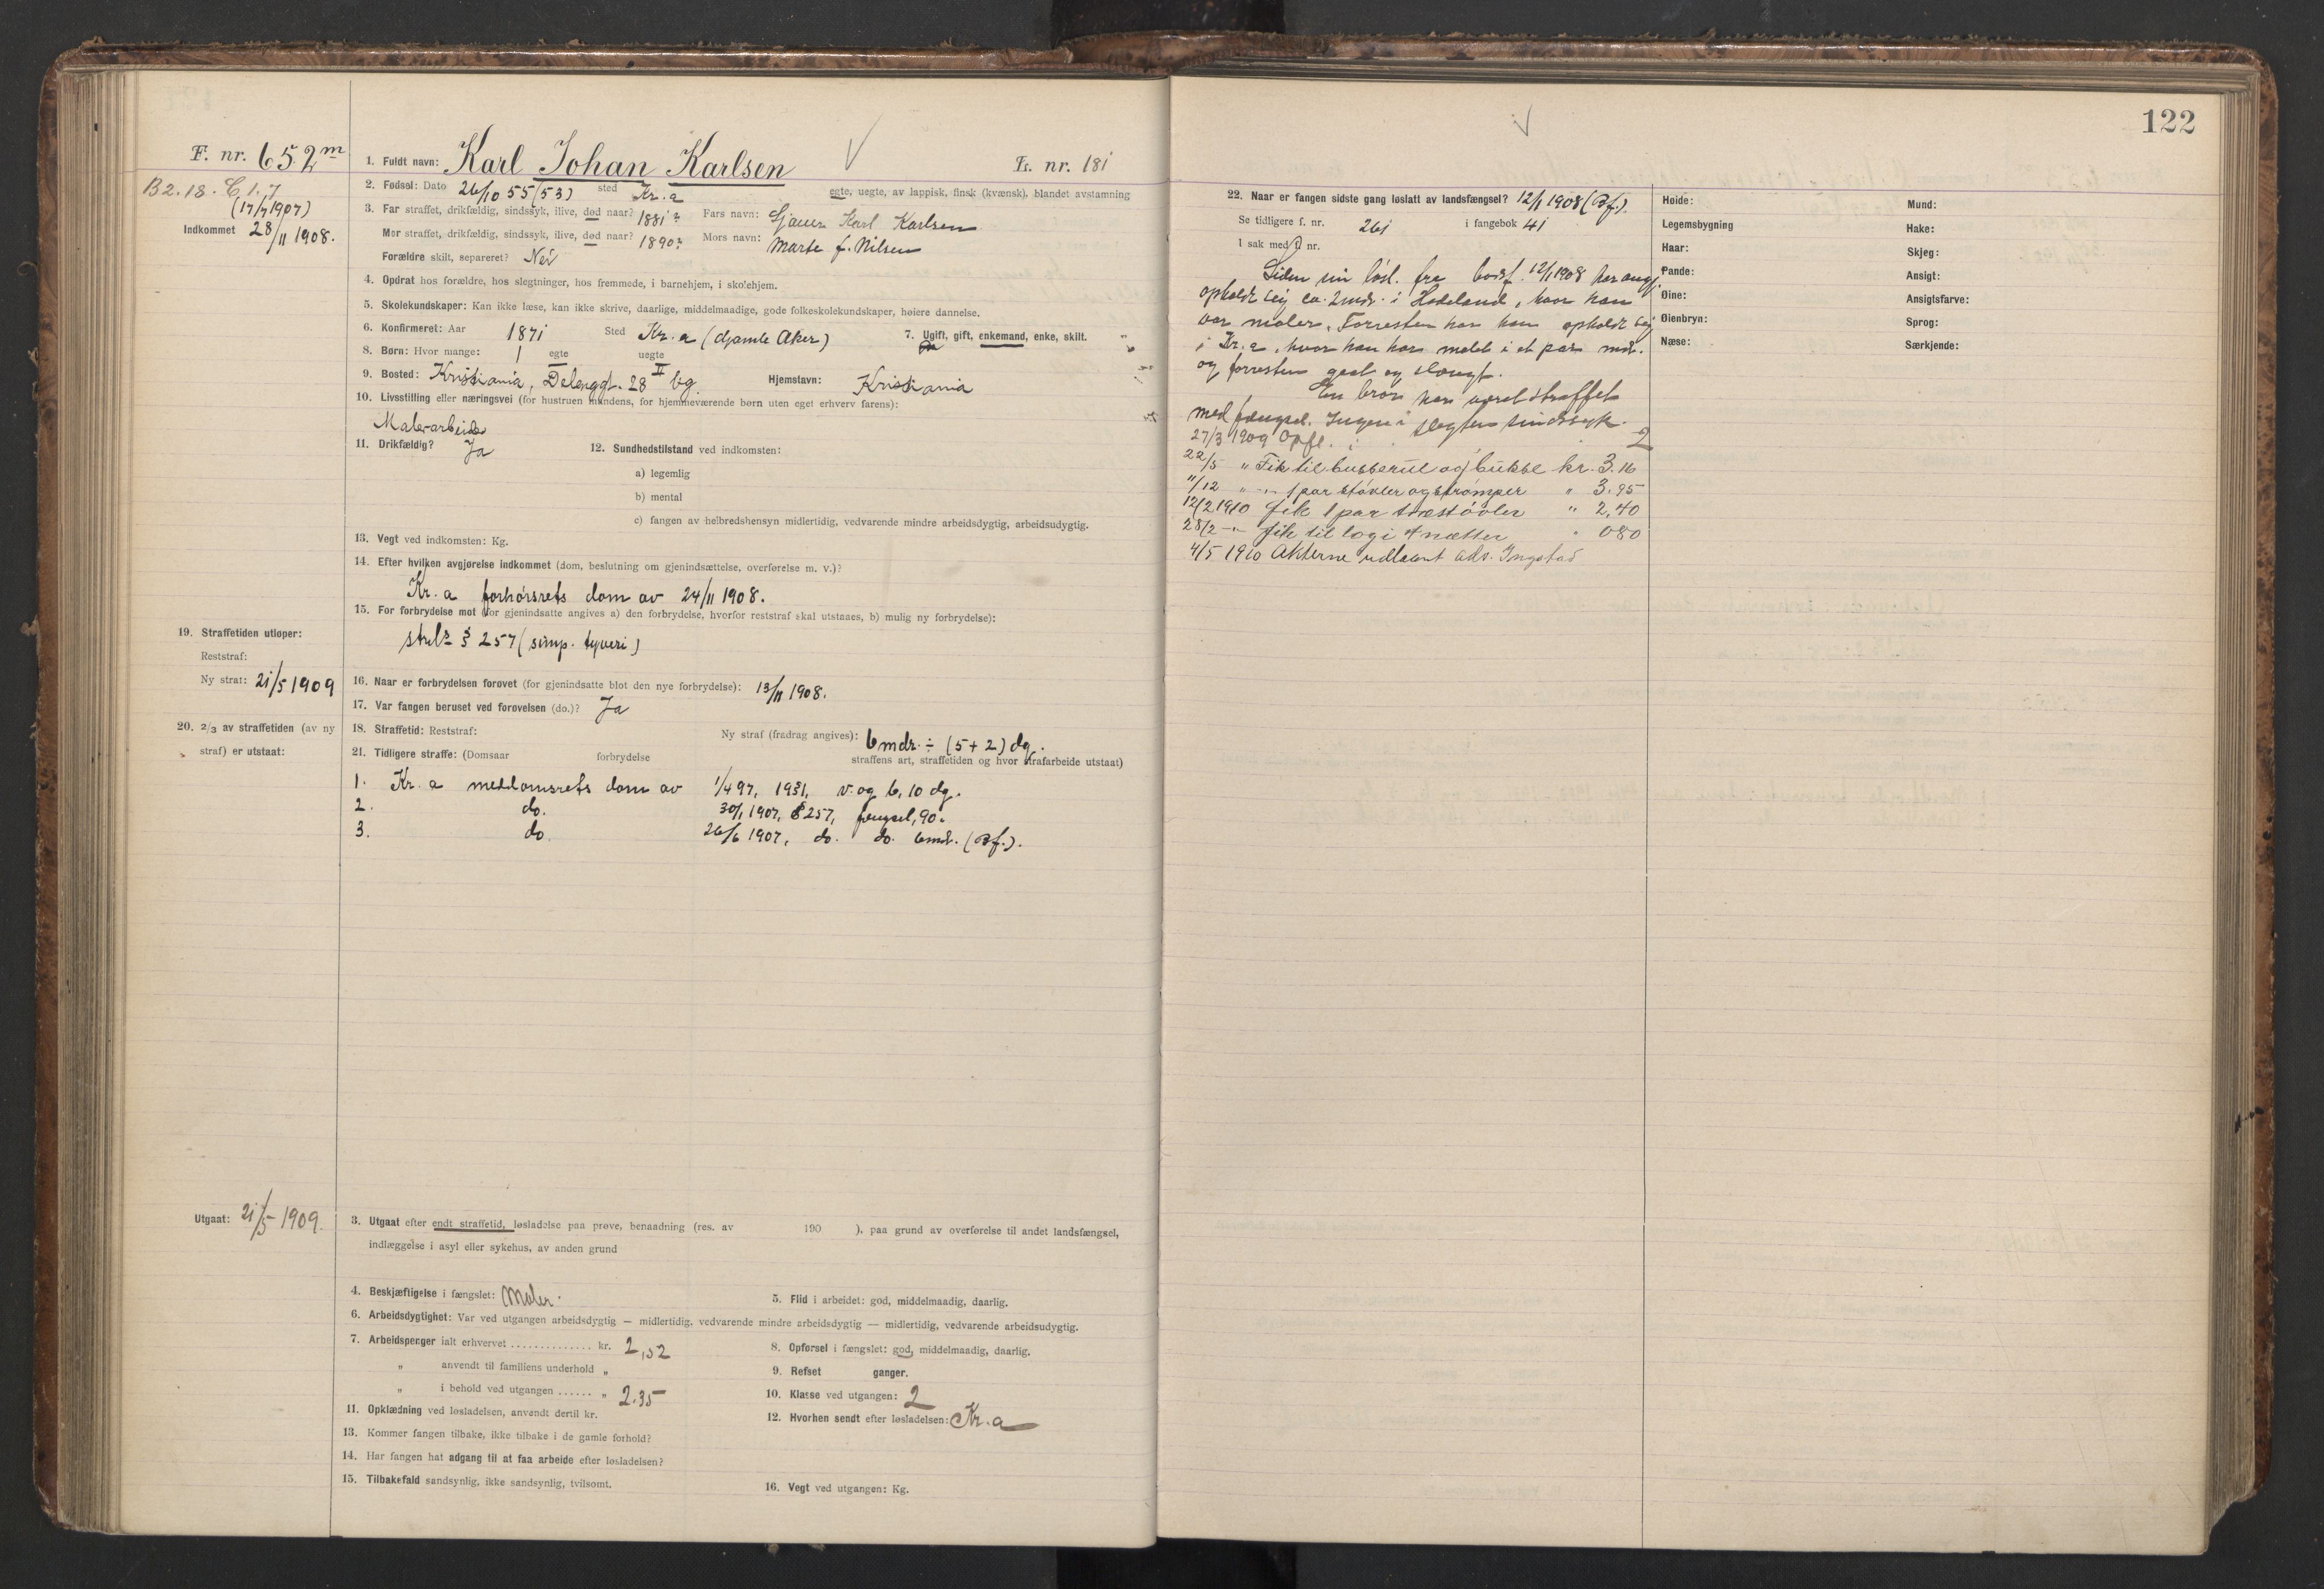 F. nr. 652 m
B2.18. C 1.7
(17/7 1907)
Indkommet 28/11 1908.
1. Fuldt navn: Karl Johan Karlsen L. nr. 181
2. Fødsel: Dato 26/10 55 (53) sted Kr.a egte, uegte, av lappisk, finsk (kvænsk), blandet avstamning
3. Far straffet, drikfældig, sindssyk, ilive, død naar? 1881? Fars navn: Karl Karlsen
Mor straffet, drikfældig, sindssyk, ilive, død naar? 1890? Mors navn: Marte f. Nilsen
Forældre skilt, separeret? Nei
4. Opdrat hos forældre, hos slegtninger, hos fremmede, i barnehjem, i skolehjem.
5. Skolekundskaper: Kan ikke læse, kan ikke skrive, daarlige, middelmaadige, gode folkeskolekundskaper, høiere dannelse.
6. Konfirmeret: Aar 1871 Sted Kr.a (Gamle Aker) 7. Ugift, gift, enkemand, enke, skilt.
8. Børn: Hvor mange: 1 egte uegte
9. Bosted: Kristiania, Delenggt. 28 II bg. Hjemstavn: Kristiania
10. Livsstilling eller næringsvei (for hustruen mandens, for hjemmeværende børn uten eget erhverv farens):
Malerarbeide
11. Drikfældig? Ja 12. Sundhedstilstand ved indkomsten:
a) legemlig
b) mental
c) fangen av helbredshensyn midlertidig, vedvarende mindre arbeidsdygtig, arbeidsudygtig.
13. Vegt ved indkomsten: Kg.
14. Efter hvilken avgjørelse indkommet (dom, beslutning om gjenindsættelse, overførelse m. v.)?
Kr.a forhørsrets dom av 24/11 1908.
15. For forbrydelse mot (for gjenindsatte angives a) den forbrydelse, hvorfor reststraf skal utstaaes, b) mulig ny forbrydelse):
strl. § 257 (simp. tyveri)
19. Straffetiden utløper:
Reststraf:
Ny straf: 21/5 1909
16. Naar er forbrydelsen forøvet (for gjenindsatte blot den nye forbrydelse): 13/11 1908.
17. Var fangen beruset ved forøvelsen (do.)? Ja
20. 2/3 av straffetiden (av ny
straf) er utstaat:
18. Straffetid: Reststraf: Ny straf (fradrag angives): 6 mdr. ÷ (5+2) dg.
21. Tidligere straffe: (Domsaar forbrydelse straffens art, straffetiden og hvor strafarbeide utstaat)
1. Kr.a meddomsrets dom av 1/4 97, v. og b, 10 dg.
2. do. 30/1 1907, § 257, fængsel, 90.
3. do. 26/6 1907, do. do. 6 md. (Bf.).
Utgaat: 21/5 1909
3. Utgaat efter endt straffetid, løsladelse paa prøve, benaadning (res. av 190 ), paa grund av overførelse til andet landsfængsel,
indlæggelse i asyl eller sykehus, av anden grund
4. Beskjæftigelse i fængslet: Maler. 5. Flid i arbeidet: god, middelmaadig, daarlig.
6. Arbeidsdygtighet: Var ved utgangen arbeidsdygtig — midlertidig, vedvarende mindre arbeidsdygtig — midlertidig, vedvarende arbeidsudygtig.
7. Arbeidspenger ialt erhvervet .............. kr. 2,52 8. Opførsel i fængslet: god, middelmaadig, daarlig.
„ anvendt til familiens underhold „ 9. Refset ganger.
„ i behold ved utgangen ...... „ 2.35 10. Klasse ved utgangen: 2
11. Opklædning ved løsladelsen, anvendt dertil kr. 12. Hvorhen sendt efter løsladelsen: Kr.a
13. Kommer fangen tilbake, ikke tilbake i de gamle forhold?
14. Har fangen hat adgang til at faa arbeide efter løsladelsen?
15. Tilbakefald sandsynlig, ikke sandsynlig, tvilsomt. 16. Vegt ved utgangen: Kg.
122
22. Naar er fangen sidste gang løslatt av landsfængsel? 12/1 1908 (Bf.).
Se tidligere f. nr. 261 i fangebok 41
I sak med f. nr.
Siden sin løsl. fra bodsf. 12/1 1908 har
opholdt sig ca. 2 mdr. i Hadeland, hvor han
var maler. Forresten har han opholdt sig
i Kr.a, hvor han har malet i et par mdr.
og forresten gaat og slængt.
En bror har været straffet
med fængsel. Ingen i slegten sindssyk.
27/3 1909 Opfl. i 2
22/5 „ Fik til busserul og bukse kr. 3.16
11/12 „ - „ 1 par støvler og strømper „ 3.95
12/2 1910 fik 1 par træstøvler „ 2,40
28/2 - „ fik til logi 4 nætter „ 0 80
4/5 1910 Akterne udlaant adv. Ingstad
Høide:
Legemsbygning
Haar:
Pande:
Øine:
Øienbryn:
Næse:
Mund:
Hake:
Skjeg:
Ansigt:
Ansigtsfarve:
Sprog:
Særkjende: